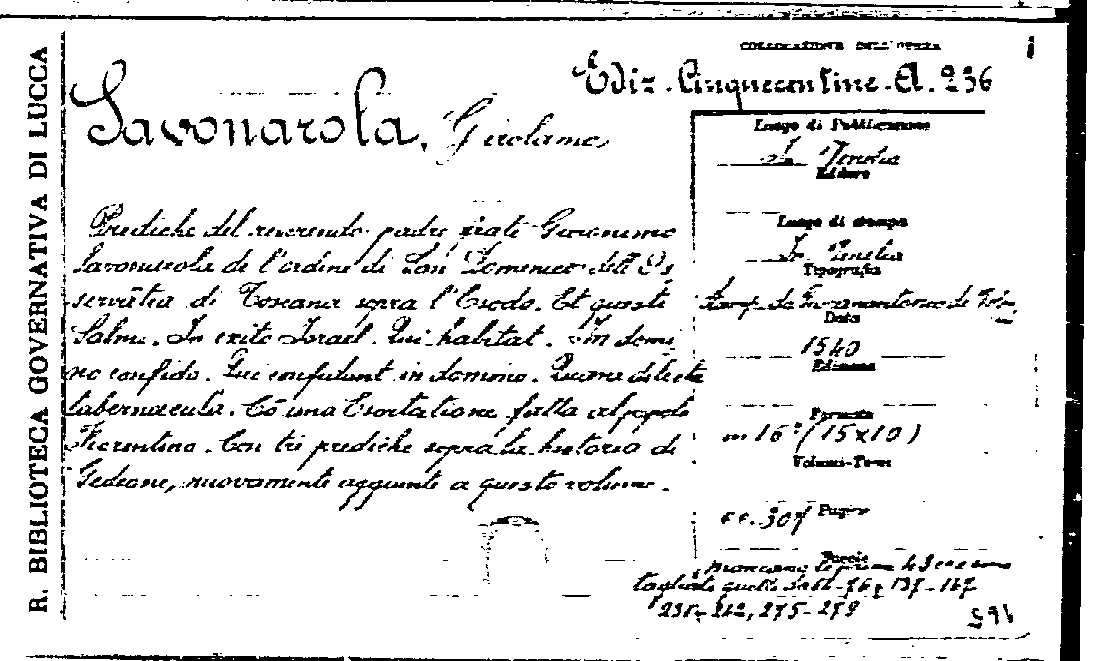 R. BIBLIOTECA GOVERNATIVA DI LUCCA
COLLOCAZIONE DELL'OPERA
Ediz. Cinquecentine. A. 236
Savonarola, Girolamo
Prediche del reverendo padre frate Gieronimo
Savonarola de l'ordine di San Domenico dell'Os
servātia di Toscana sopra l'Esodo. Et questi
Salmi. In exito Israel. Qui habitat. In domi
no confido. Qui confidunt in domino. Quam dilecta
tabernacula. Cō una Esortatione fatta al popolo
Fiorentino. Con tri prediche sopra la historia di
Gedeone, nuovamente aggiunte a questo volume.
Luogo di Pubblicazione
In Venetia
Editore
Luogo di stampa
In Venetia
Tipografia
Stamp. da Giovannantonio de
Data
1540
Edizione
Formato
in 16° (15x10)
Volumi-Tomi
Pagine
cc. 307
mancano le prime
tagliate quelle dalla 137-147
242, 275-279